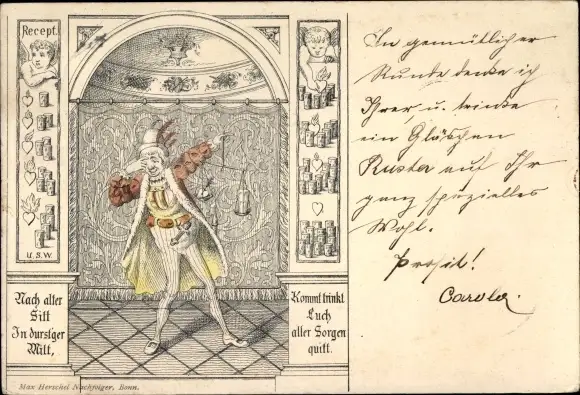 Recept.
U.S.W.
Nach alter
Sitt
In durstger
Mitt,
Kommt trinkt
Euch
aller Sorgen
quitt.
Max Herschel Nachfolger, Bonn.
In gemütlicher
Runde denke ich
Ihrer u. trinke
ein Gläschen
Ruster auf Ihr
ganz spezielles
Wohl.
Prosit!
Carola.